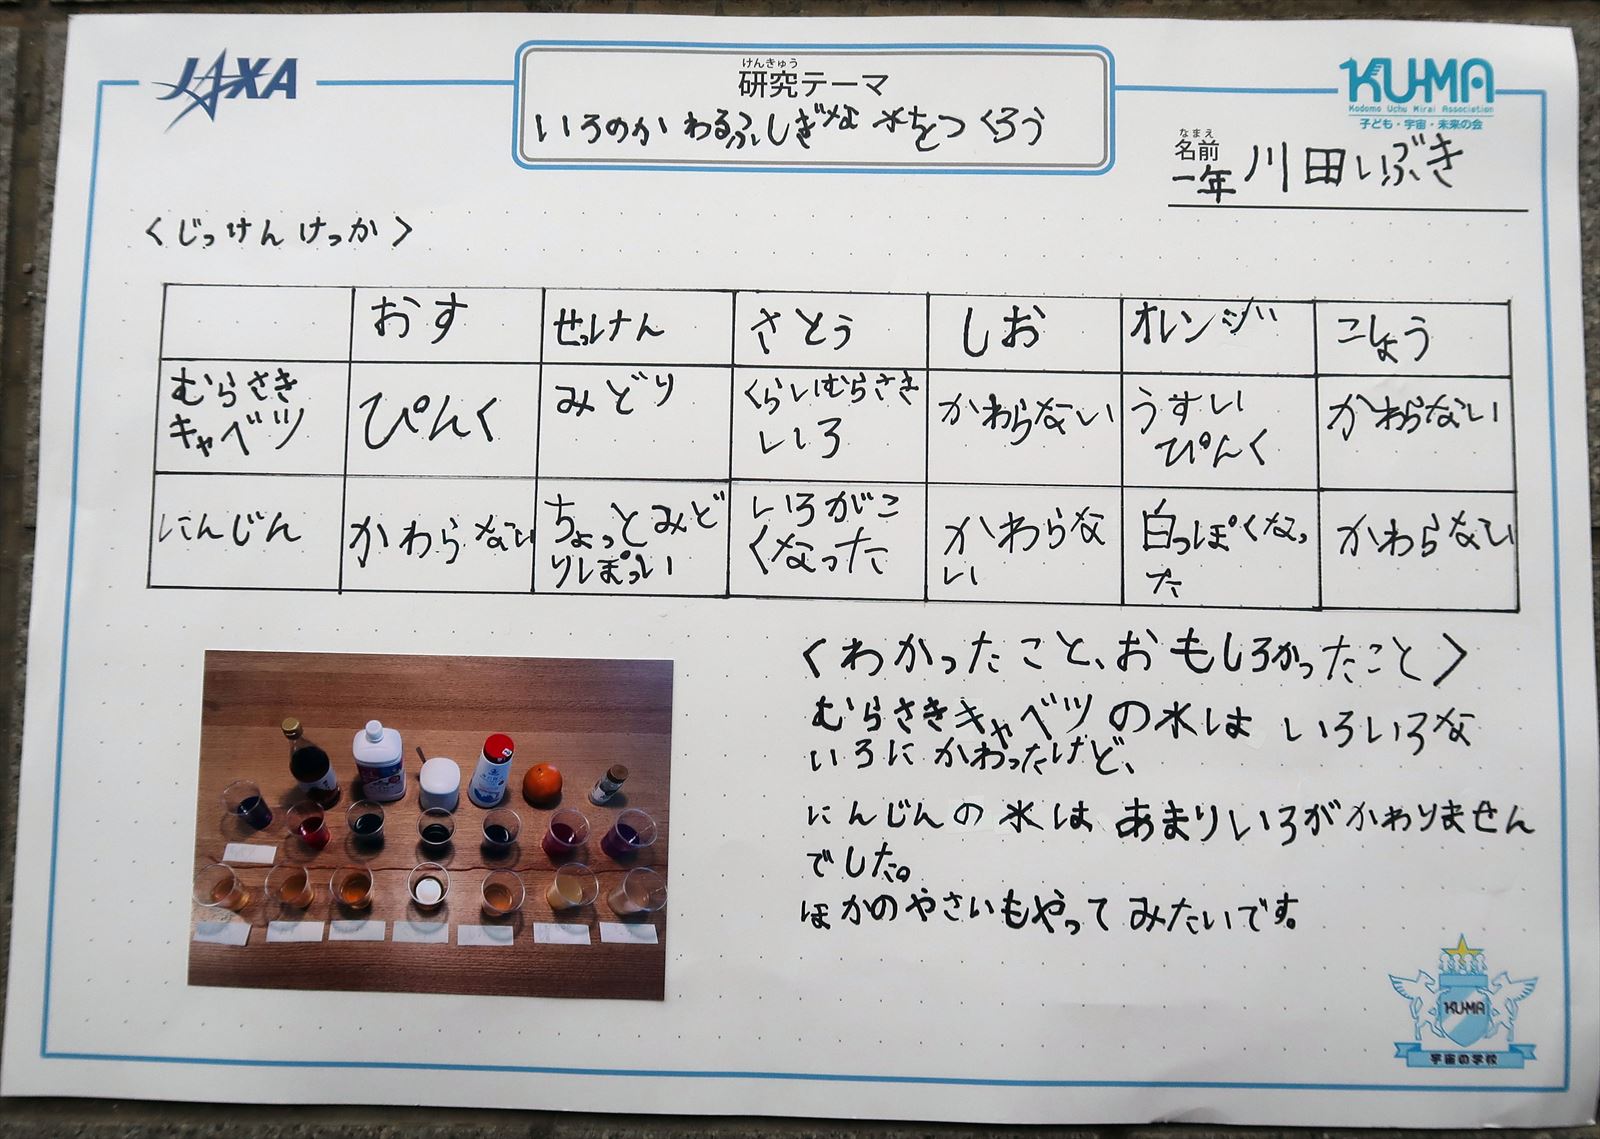 JAXA
けんきゅう
研究テーマ
いろのかわるふしぎな水をつくろう
KU-MA
Kodomo Uchu Mirai Association
子ども・宇宙・未来の会
なまえ
名前
一年 川田いぶき
〈じっけんけっか〉
おす せっけん さとう しお オレンジ こしょう
むらさき
キャベツ
ぴんく
みどり
くらいむらさき
いろ
かわらない
うすい
ぴんく
かわらない
にんじん
かわらない
ちょっとみど
りしぽっい
いろがこ
くなった
かわらな
い
白っぽくなっ
た
かわらない
〈わかったこと、おもしろかったこと〉
むらさきキャベツの水はいろいろな
いろにかわったけど、
にんじんの水はあまりいろがかわりません
でした。
ほかのやさいもやってみたいです。
KU-MA
宇宙の学校